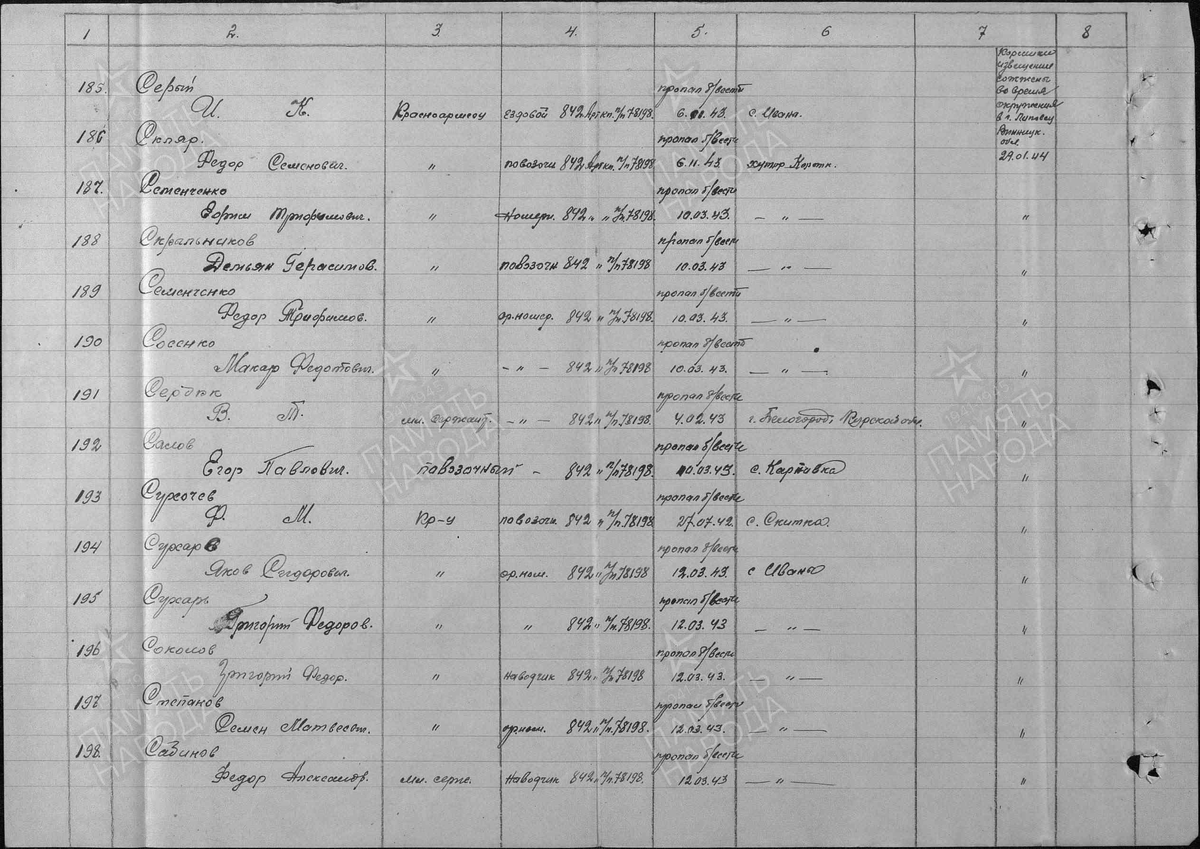 1 2. 3. 4. 5. 6 7 8
Корешки
извещения
сожжены
во время
окружения
в г. Липовец
Винницк.
обл.
29.01.44
185. Серый пропал б/вести
И. К. Красноармеец ездовой 842 Арткп. п/п 78198. 6. 11. 43. с. Ивана.
186 Скляр. пропал б/вести
Федор Семенович. " повозочн 842 Арткп. п/п 78198. 6.11.43. хутор
187. Семенченко пропал б/вести
Ефим Трифимович. " Номерн. 842 " " п/п 78198. 10.03.43. — " — "
188 пропал б/вести
Демьян Герасимов. " повозочн 842 " п/п 78198. 10.03.43 — " — "
189 Семенченко пропал б/вести
Федор Трифимов. " ор.номер. 842 " п/п 78198. 10.03.43. — " — "
190 Сосенко пропал б/вести
Макар Федотович. " – " – 842 " п/п 78198 10.03.43. — " — "
191 Сердюк пропал б/вести
В. Т. мл. сержант. – " – 842 " п/п 78198. 4.02.43 г. Белогород, Курской обл. "
192 Салов пропал б/вести
Егор Павлович. повозочный – 842 " п/п 78198. 10.03.43. с. Картавка "
193 Сухочев пропал б/вести
Ф. М. Кр-ц повозочн. 842 " п/п. 78198 27.07.42. с. Скитка. "
194 Сухарев пропал б/вести
Яков Сидорович. " ор.ном. 842 " п/п 78198 12.03.43. с Ивана "
195 Сухарь пропал б/вести
Григорий Федоров. " " 842 " п/п. 78198. 12.03.43 — " — "
196 Соколов пропал б/вести
Григорий Федор. " Наводчик 842 " п/п 78198 12.03.43. — " — "
197 Степанов пропал б/вести
Семен Матвеевич. " ор.ном. 842 " п/п. 78198. 12.03.43 — " — "
198. Сабинов пропал б/вести
Федор Александр. мл. серж. Наводчик 842 " п/п. 78198. 12.03.43 — " — "
ПАМЯТЬ
НАРОДА